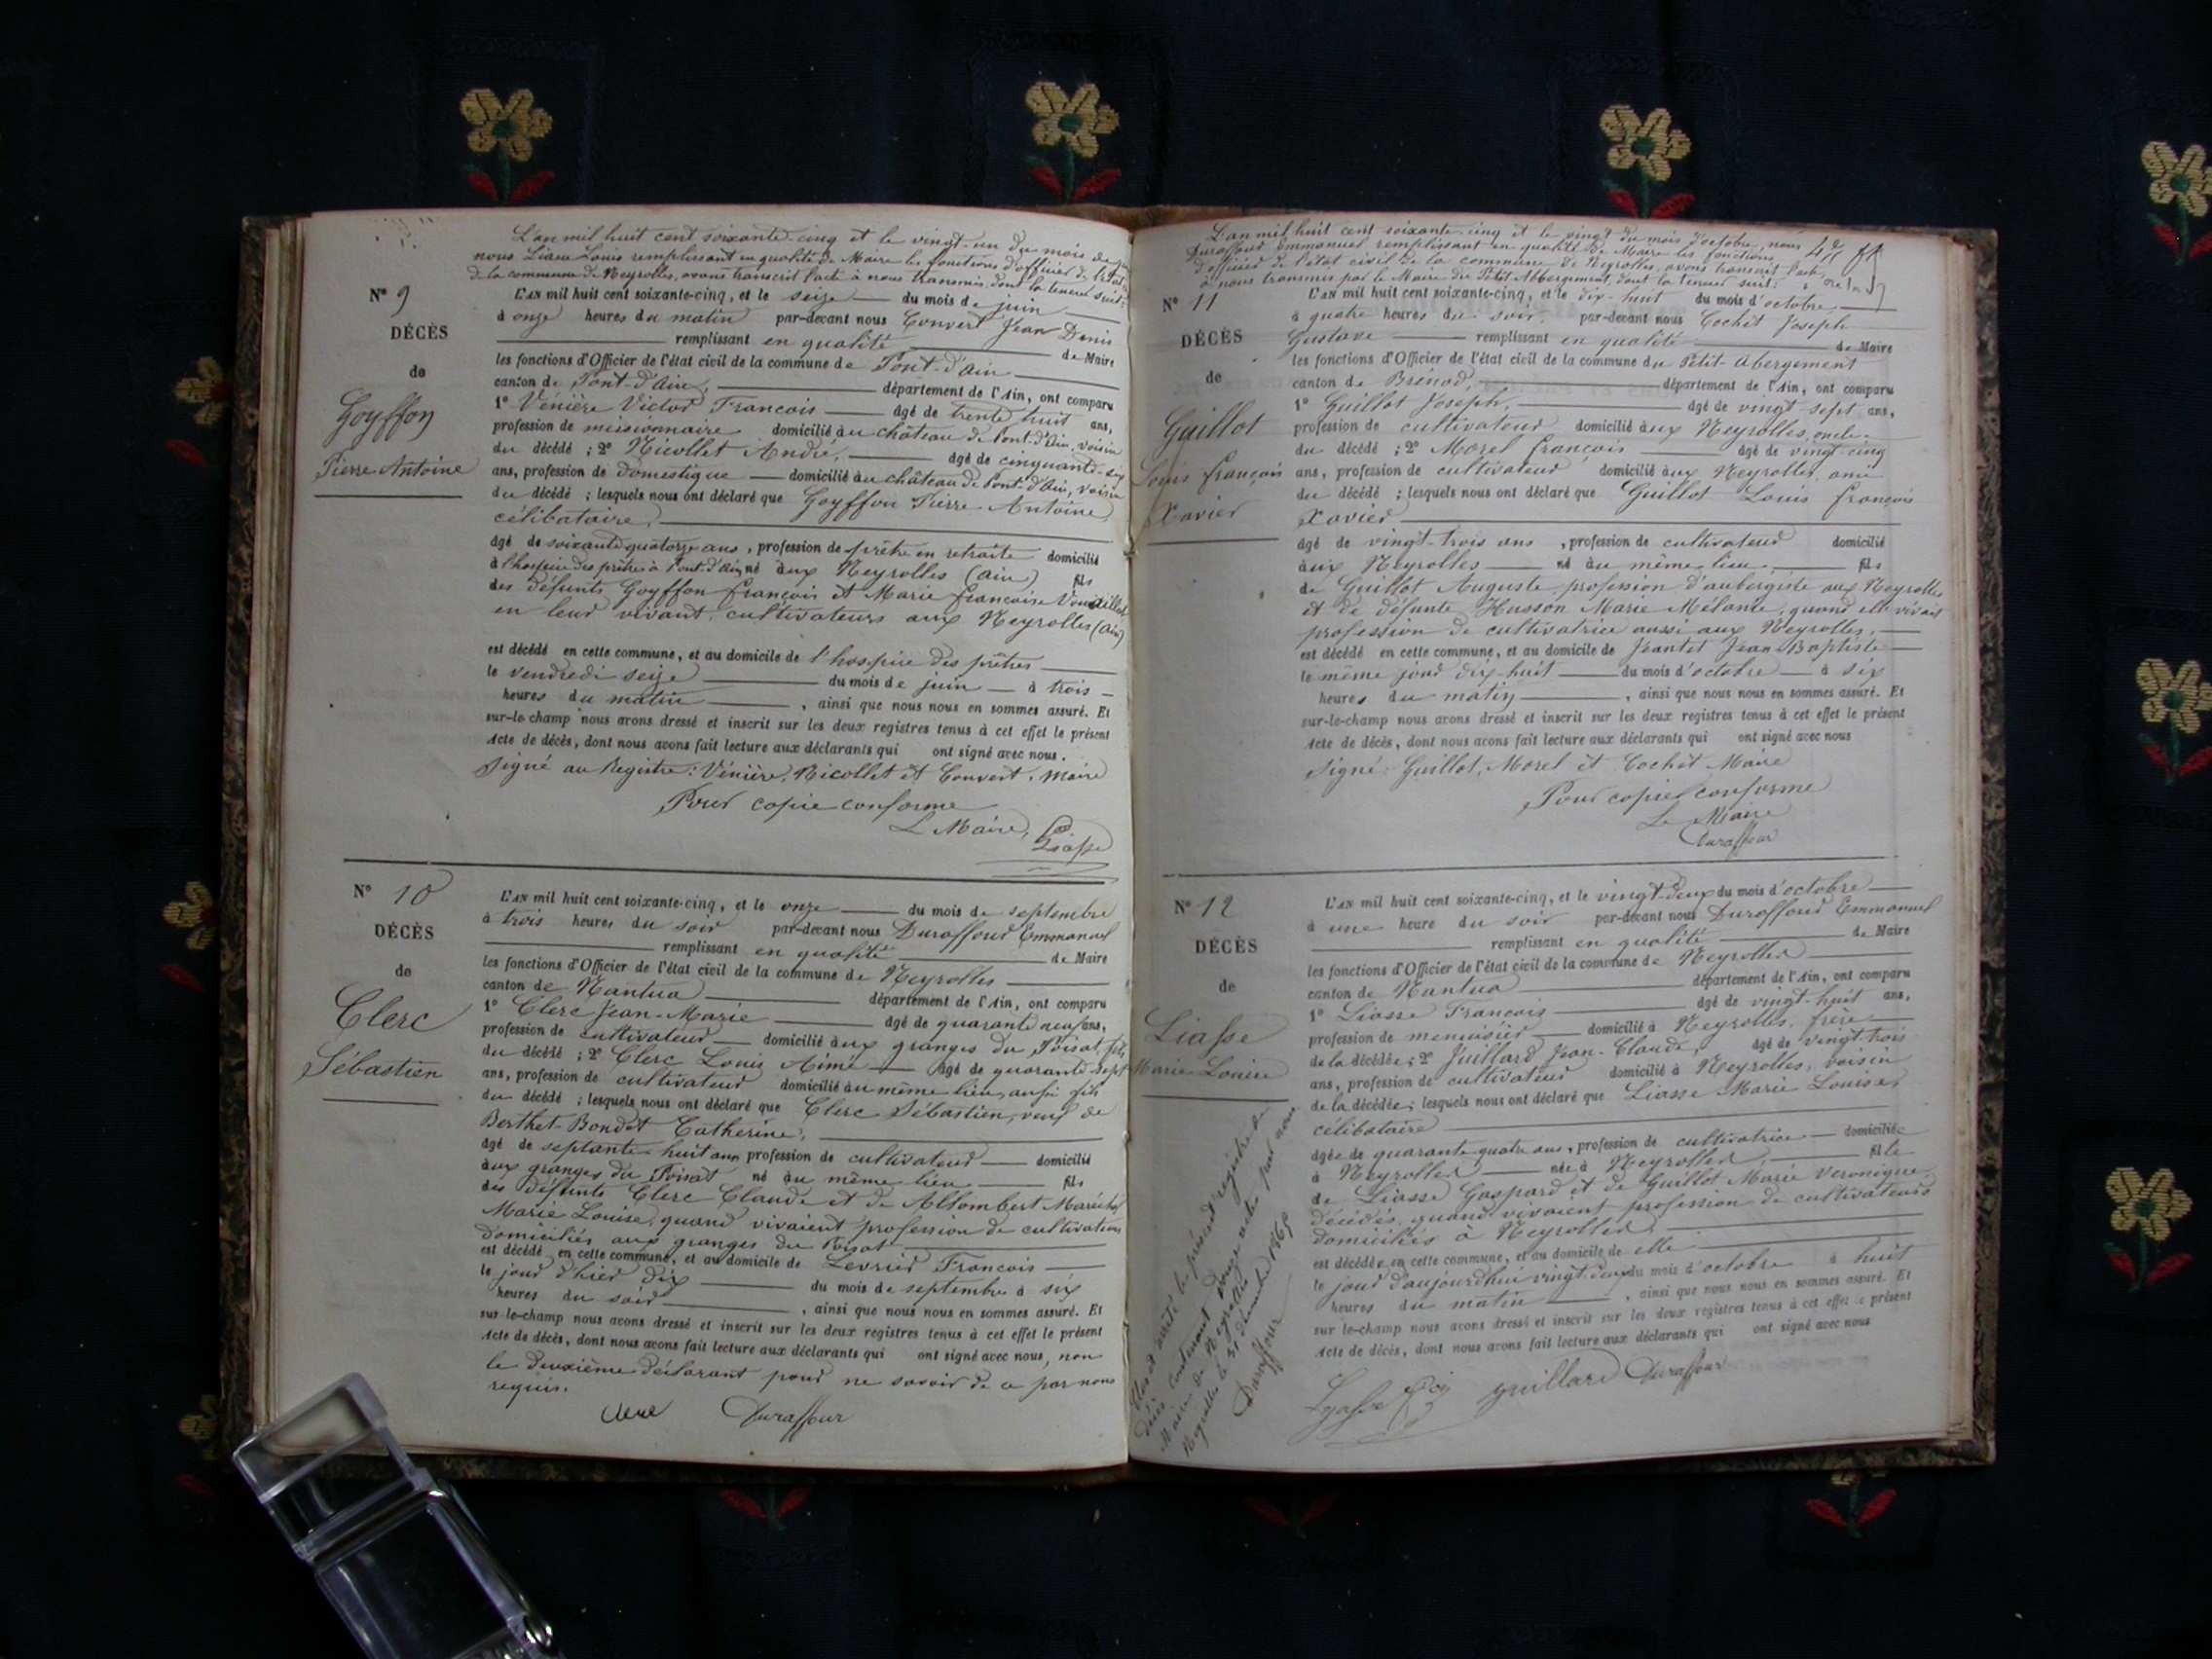 L'an mil huit cent soixante-cinq et le vingt-un du mois de
nous Liasse Louis remplissant en qualité de Maire les fonctions d'officier de l'état
de la commune de Neyrolles, avons transcrit l'acte à nous transmis, dont la teneur suit:
N° 9
DÉCÈS
de
Goyffon
Pierre Antoine
L'AN mil huit cent soixante-cinq, et le seize du mois de juin
à onze heures du matin par-devant nous Convert Jean Denis
remplissant en qualité de Maire
les fonctions d'Officier de l'état civil de la commune de Pont-d'Ain
canton de Pont-d'Ain, département de l'Ain, ont comparu
1° Vénière Victor François âgé de trente huit ans,
profession de missionnaire domicilié au château de Pont-d'Ain, voisin
du décédé ; 2° Nicollet André, âgé de cinquante-six
ans, profession de domestique domicilié au château de Pont-d'Ain, voisin
du décédé ; lesquels nous ont déclaré que Goyffon Pierre Antoine,
célibataire,
âgé de soixante quatorze ans, profession de prêtre en retraite domicilié
à l'hospice des prêtres à Pont-d'Ain, né aux Neyrolles (Ain) fils
des défunts Goyffon François et Marie Françoise
en leur vivant, cultivateurs aux Neyrolles (Ain)
est décédé en cette commune, et au domicile de l'hospice des prêtres
le vendredi seize du mois de juin à trois
heures du matin, ainsi que nous nous en sommes assuré. Et
sur-le-champ nous avons dressé et inscrit sur les deux registres tenus à cet effet le présent
Acte de décès, dont nous avons fait lecture aux déclarants qui ont signé avec nous.
Signé au Registre: Vénière, Nicollet et Convert, Maire
Pour copie conforme
L Maire,
Liasse
N° 10
DÉCÈS
de
Clerc
Sébastien
L'AN mil huit cent soixante-cinq, et le onze du mois de septembre
à trois heures du soir par-devant nous Duraffour Emmanuel
remplissant en qualité de Maire
les fonctions d'Officier de l'état civil de la commune de Neyrolles
canton de Nantua département de l'Ain, ont comparu
1° Clerc Jean-Marie âgé de quarante neuf ans,
profession de cultivateur domicilié aux granges du Poisat, fils
du décédé ; 2° Clerc Louis Aimé âgé de quarante sept
ans, profession de cultivateur domicilié au même lieu, aussi fils
du décédé ; lesquels nous ont déclaré que Clerc Sébastien, veuf de
Berthet-Bondet Catherine,
âgé de septante-huit ans profession de cultivateur domicilié
aux granges du Poisat né au même lieu fils
des défunts Clerc Claude et de Allombert Maréchal
Marie Louise, quand vivaient profession de cultivateurs
domiciliés aux granges du Poisat
est décédé en cette commune, et au domicile de Levrier François
le jour d'hier dix du mois de septembre à six
heures du soir, ainsi que nous nous en sommes assuré. Et
sur-le-champ nous avons dressé et inscrit sur les deux registres tenus à cet effet le présent
Acte de décès, dont nous avons fait lecture aux déclarants qui ont signé avec nous, non
le deuxième déclarant pour ne savoir de ce par nous
requis.
Clerc Duraffour
L'an mil huit cent soixante-cinq et le vingt du mois d'octobre, nous
Duraffour Emmanuel remplissant en qualité de Maire les fonctions
d'officier de l'état civil de la commune de Neyrolles, avons transcrit l'acte
à nous transmis par le Maire du Petit Abbergement, dont la teneur suit:
N° 11
DÉCÈS
de
Guillot
Louis François
Xavier
L'AN mil huit cent soixante-cinq, et le dix-huit du mois d'octobre
à quatre heures du soir, par-devant nous Cochet Joseph
Gustave remplissant en qualité de Maire
les fonctions d'Officier de l'état civil de la commune du Petit-Abergement
canton de Brénod, département de l'Ain, ont comparu
1° Guillot Joseph, âgé de vingt-sept ans,
profession de cultivateur domicilié aux Neyrolles, oncle
du décédé ; 2° Morel François âgé de vingt-cinq
ans, profession de cultivateur domicilié aux Neyrolles, ami
du décédé ; lesquels nous ont déclaré que Guillot Louis François
Xavier
âgé de vingt-trois ans, profession de cultivateur domicilié
aux Neyrolles né au même lieu, fils
de Guillot Auguste profession d'aubergiste aux Neyrolles
et de défunte Husson Marie Mélanie, quand elle vivait
profession de cultivatrice aussi aux Neyrolles,
est décédé en cette commune, et au domicile de Jeantet Jean Baptiste
le même jour dix-huit du mois d'octobre à six
heures du matin, ainsi que nous nous en sommes assuré. Et
sur-le-champ nous avons dressé et inscrit sur les deux registres tenus à cet effet le présent
Acte de décès, dont nous avons fait lecture aux déclarants qui ont signé avec nous
Signé: Guillot, Morel et Cochet Maire
Pour copie conforme
Le Maire
Duraffour
N° 12
DÉCÈS
de
Liasse
Marie Louise
L'AN mil huit cent soixante-cinq, et le vingt-deux du mois d'octobre
à une heure du soir par-devant nous Duraffour Emmanuel
remplissant en qualité de Maire
les fonctions d'Officier de l'état civil de la commune de Neyrolles
canton de Nantua département de l'Ain, ont comparu
1° Liasse François âgé de vingt-huit ans,
profession de menuisier domicilié à Neyrolles, frère
de la décédée ; 2° Juillard Jean-Claude, âgé de vingt-trois
ans, profession de cultivateur domicilié à Neyrolles, voisin
de la décédée ; lesquels nous ont déclaré que Liasse Marie Louise,
célibataire
âgée de quarante quatre ans, profession de cultivatrice domiciliée
à Neyrolles née à Neyrolles, fille
de Liasse Gaspard et de Guillot Marie Veronique
décédés, quand vivaient profession de cultivateurs
domiciliés à Neyrolles
est décédée en cette commune, et au domicile de elle
le jour d'aujourd'hui vingt-deux du mois d'octobre à huit
heures du matin, ainsi que nous nous en sommes assuré. Et
sur-le-champ nous avons dressé et inscrit sur les deux registres tenus à cet effet le présent
Acte de décès, dont nous avons fait lecture aux déclarants qui ont signé avec nous
Lyasse Juillard Duraffour
Clos et arrêté le présent registre de
décès contenant douze actes par nous
Maire de Neyrolles
Neyrolles le 31 décembre 1865
Duraffour